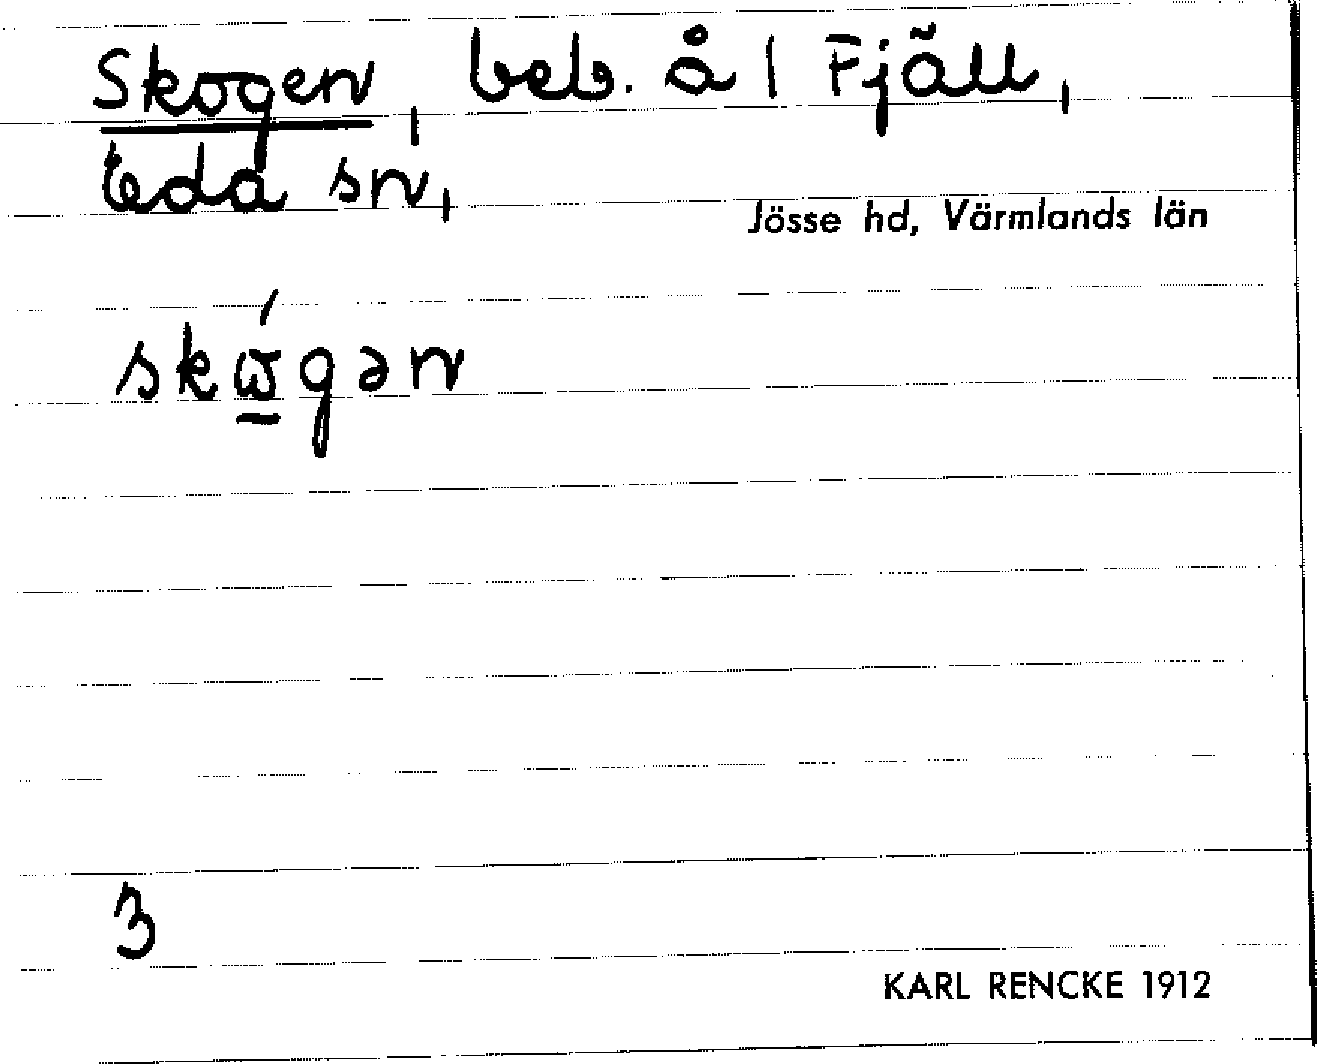 Skogen, beb. å 1 Fjäll,
Eda sn,
Jösse hd, Värmlands län
skώ̲gən
3
KARL RENCKE 1912